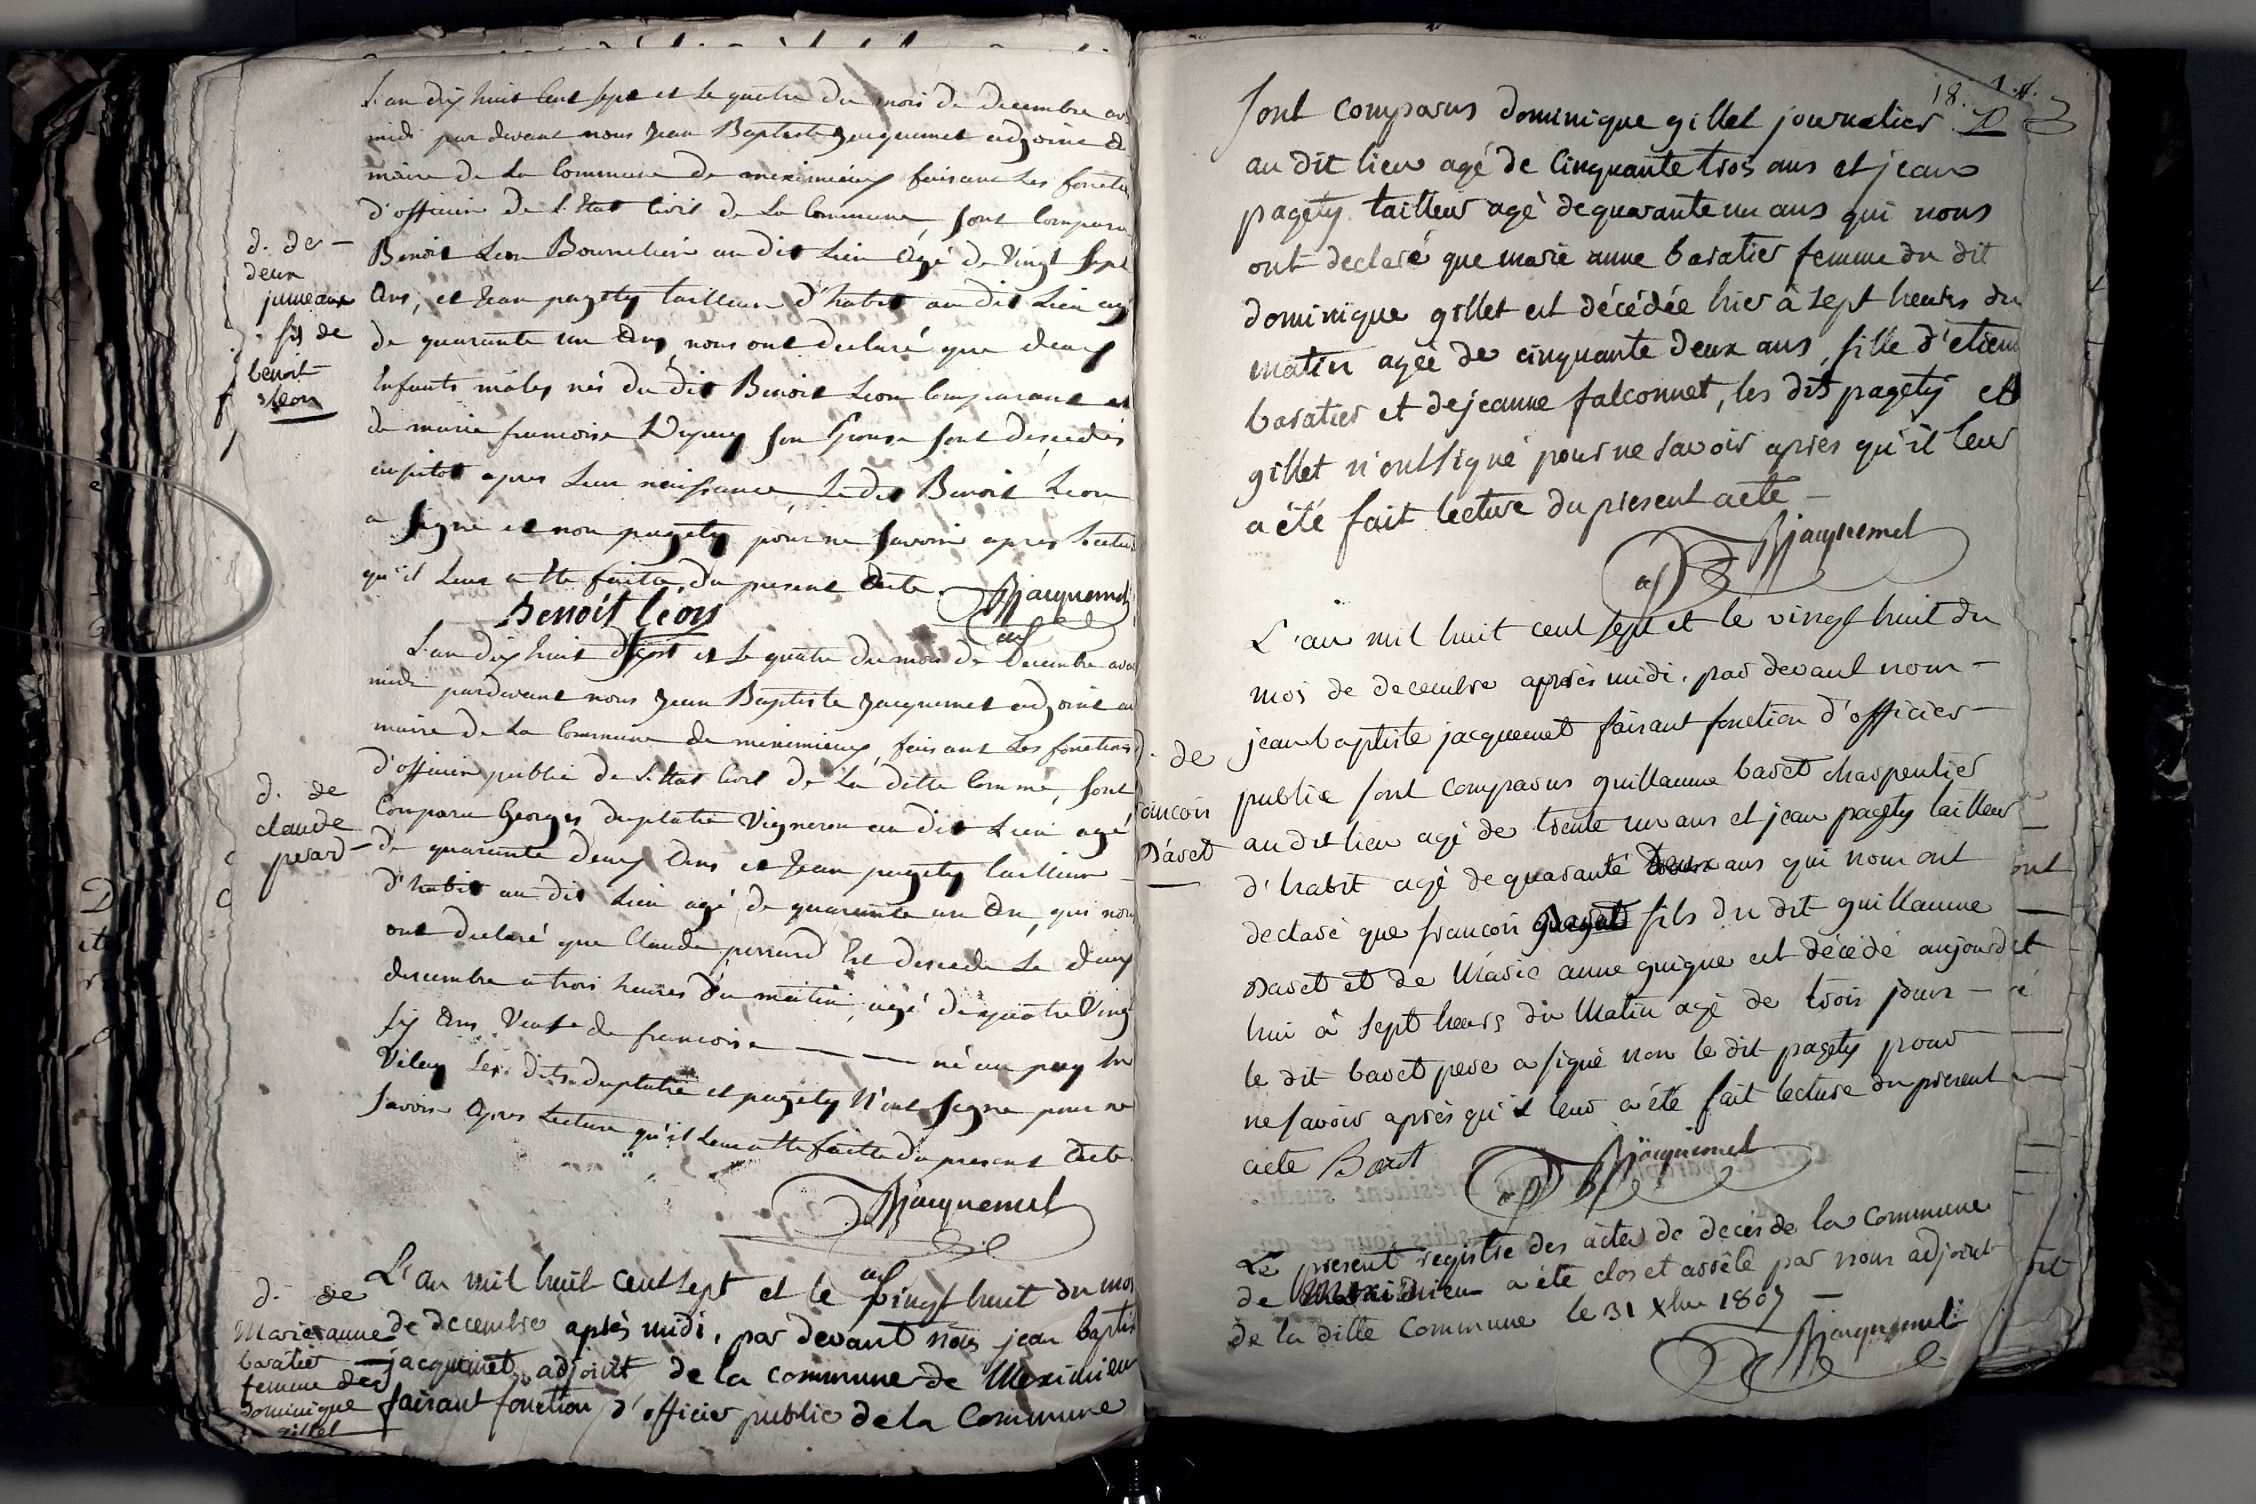 L'an dix huit cent sept et le quatre du mois de decembre av
midi par devant nous Jean Baptiste Jacquemet adjoint
maire de la Commune de meximieux faisant les fonctio
d'officier de l'Etat Civil de la Commune, sont comparu
d. de
deux
jumeaux
fils de
benoit
leon
Benoit Leon Bourrelier au dit Lieu agé de Vingt Sept
Ans, et Jean pagety tailleur d'habit au dit Lieu agé
de quarante un Ans, nous ont declaré que deux
Enfants mâles nés du dit Benoit Leon Comparant et
de marie francoise son Epouse sont decedés
apres Leur naissance, Le dit Benoit Leon
a Signé et non pagety pour ne savoir apres lectur
qu'il Leur a ete faitte du present Acte. Jacquemet
Benoit léon
adj
L'an dix huit et le quatre du mois de Decembre avan
midi pardevant nous Jean Baptiste Jacquemet adjoint au
maire de la Commune de meximieux faisant les fonctions
d'officier public de l'Etat Civil de La ditte Comme, sont
d. de
claude
perard
Comparu Georges duplatre Vigneron au dit Lieu agé
de quarante deux Ans et Jean pagety tailleur
d'habit au dit Lieu agé de quarante un An, qui nous
ont declaré que Claude perrard Est decedé Le deux
decembre a trois heures du matin, agé de quatre Ving
six Ans Veuf de francoise — — né au puy
Les dits duplatre et pagety N'ont Signé pour ne
savoir apres Lecture qu'il Leur a ete faitte du present Acte.
Jacquemet
adj
d. de
Marie anne
baratier
femme de
dominique
gillet
L'an mil huit cent sept et le vingt huit du mois
de decembre après midi, par devant nous jean baptis
jacquemet adjoint de la commune de Meximieu
faisant fonction d'officier public de la Commune
18.
sont comparus dominique gillet journalier
au dit lieu agé de Cinquante trois ans et jean
pagety tailleur agé de quarante un ans qui nous
ont declaré que marie anne baratier femme du dit
dominique gillet est décédée hier à sept heures du
matin agée de cinquante deux ans, fille d'etienn
baratier et de jeanne falconnet, les dits pagety et
gillet n'ont signé pour ne savoir apres qu'il leur
a été fait lecture du present acte —
Jacquemet
adj
L'an mil huit cent sept et le vingt huit du
mois de decembre après midi, par devant nous —
d. de
ancois
Baret
jean baptiste jacquemet faisant fonction d'officier —
public sont comparus guillaume baret charpentier
au dit lieu agé de trente un ans et jean pagety tailleur
d'habit agé de quarante deux ans qui nous ont
declaré que francois fils du dit guillaume
Baret et de Marie anne guigue est décédé aujourd
hui à sept heures du Matin agé de trois jours —
le dit baret pere a signé non le dit pagety pour
ne savoir après qu'il leur a été fait lecture du present
acte Baret
Jacquemet
adj
Le present registre des actes de deces de la Commune
de Meximieu a été clos et arrêté par nous adjoint
de la ditte Commune le 31 Xbre 1807 —
Jacquemet